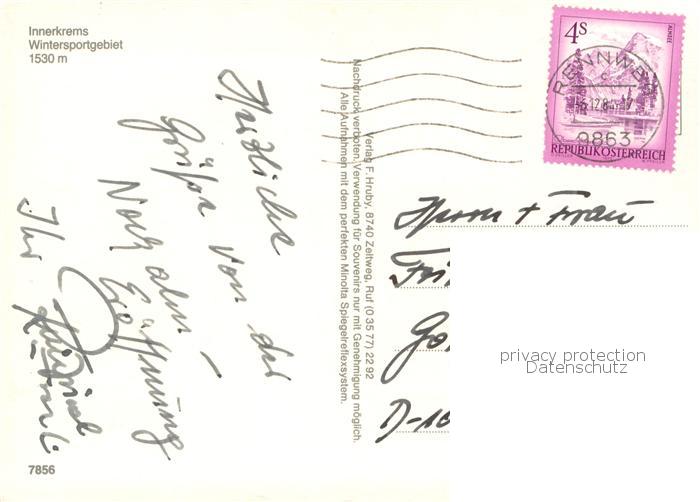 Innerkrems
Wintersportgebiet
1530 m
Herzliche
Grüße von der
Nockalm-
Eröffnung
Ihr
7856
Verlag F. Hruby, 8740 Zeltweg, Ruf (0 35 77) 22 92
Nachdruck verboten, Verwendung für Souvenirs nur mit Genehmigung möglich.
Alle Aufnahmen mit dem perfekten Minolta Spiegelreflexsystem.
4S
ALMSEE
RENNWEG
9863
REPUBLIK ÖSTERREICH
Herrn + Frau
D-
privacy protection
Datenschutz